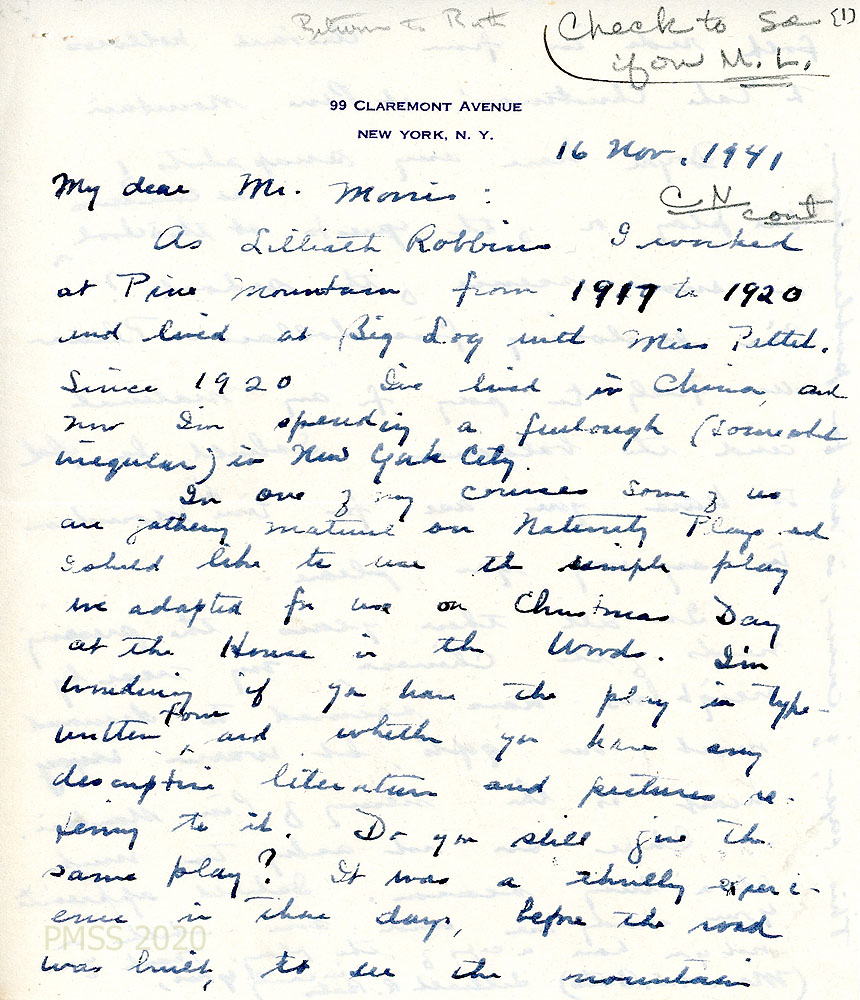 Return to Ruth
Check to see [1]
if on M. L.
99 CLAREMONT AVENUE
NEW YORK, N. Y.
16 Nov. 1941
My dear Mr. Morris:
C N
cont
As Lillieth Robbins I worked
at Pine Mountain from 1917 to 1920
and lived at Big Log with Miss Pettit.
Since 1920 I've lived in China, and
now I'm spending a furlough (somewhat
irregular) in New York City.
In one of my courses some of us
are gathering material on Nativity Plays and
I should like to use the simple play
we adapted for use on Christmas Day
at the House in the Woods. I'm
wondering if you have the play in type-
written form, and whether you have any
descriptive literature and pictures re-
ferring to it. Do you still give the
same play? It was a thrilling experi-
ence in those days, before the road
was built, to see the mountain
PMSS 2020